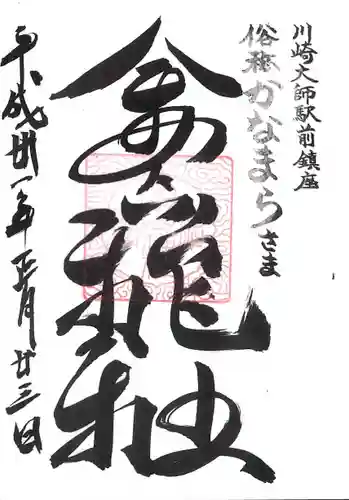 川崎大師駅前鎮座
俗称かなまらさま
金山神社
平成丗一年正月廿三日